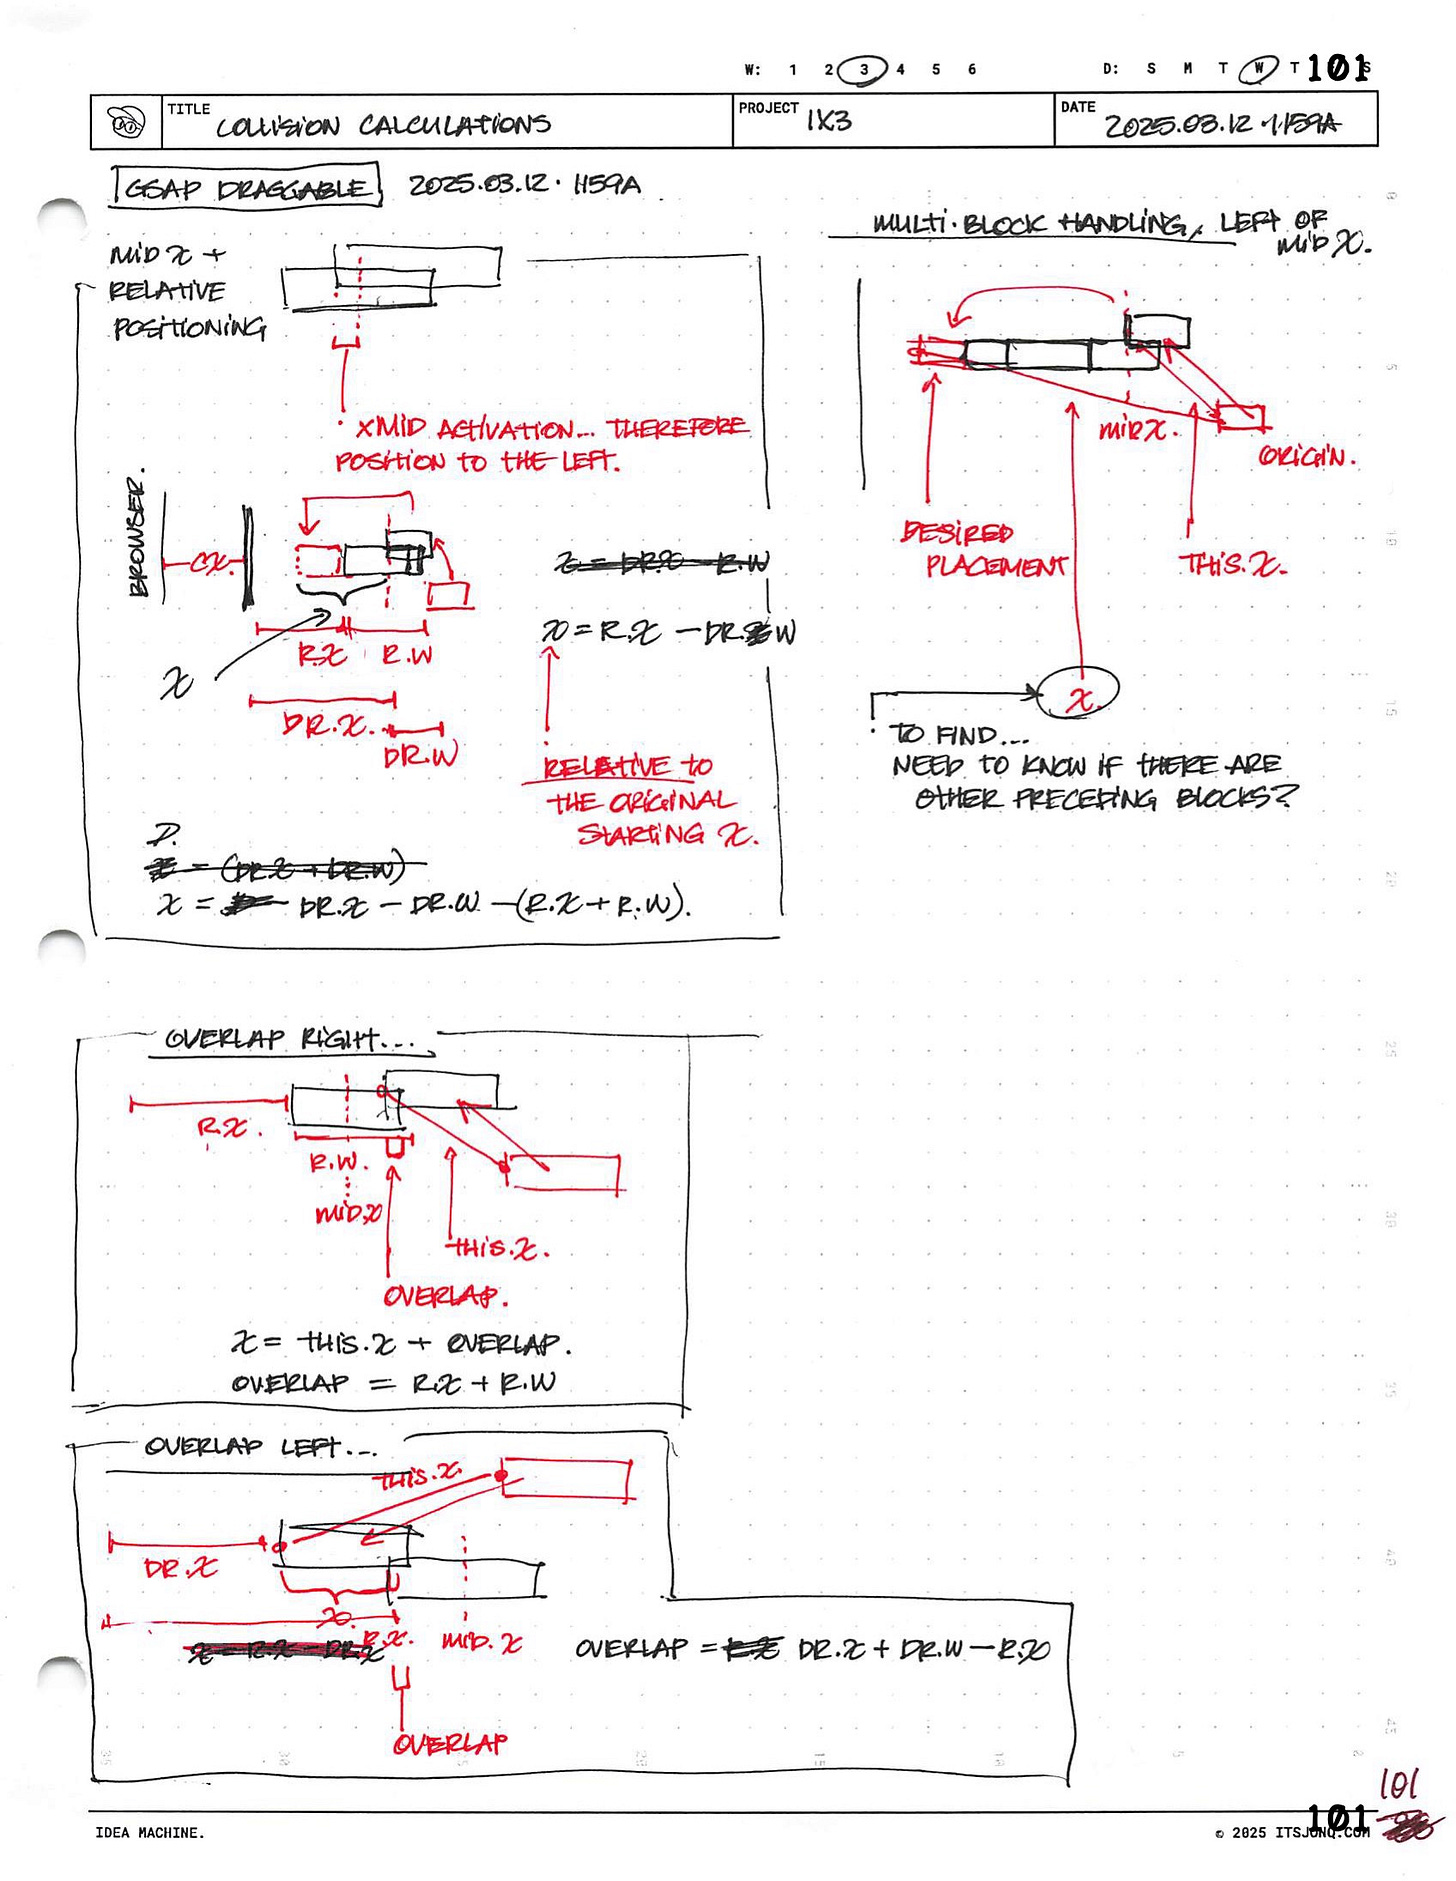 W: 1 2 3 4 5 6
D: S M T W T S
101
TITLE COLLISION CALCULATIONS
PROJECT 1X3
DATE 2025.03.12 · 1159A
GSAP DRAGGABLE 2025.03.12 · 1159A
MID X +
RELATIVE
POSITIONING
XMID ACTIVATION... THEREFORE
POSITION TO THE LEFT.
BROWSER.
CX.
X
R.X R.W
DR.X.
DR.W
X = DR.X - R.W
X = R.X - DR.W
RELATIVE TO
THE ORIGINAL
STARTING X.
D.
X = (DR.X + DR.W)
X = DR.X - DR.W - (R.X + R.W).
MULTI-BLOCK HANDLING, LEFT OF
MID X.
MID X.
ORIGIN.
DESIRED
PLACEMENT
THIS.X.
X.
TO FIND...
NEED TO KNOW IF THERE ARE
OTHER PRECEDING BLOCKS?
OVERLAP RIGHT...
R.X.
R.W.
MID.X
THIS.X.
OVERLAP.
X = THIS.X + OVERLAP.
OVERLAP = R.X + R.W
OVERLAP LEFT...
THIS.X.
DR.X
X.
R.X.
MID.X
X = R.X - DR.X
OVERLAP = R.X DR.X + DR.W - R.X
OVERLAP
0
5
10
15
20
25
30
35
40
45
35
30
25
20
15
10
5
0
101
IDEA MACHINE.
101
© 2025 ITSJONQ.COM